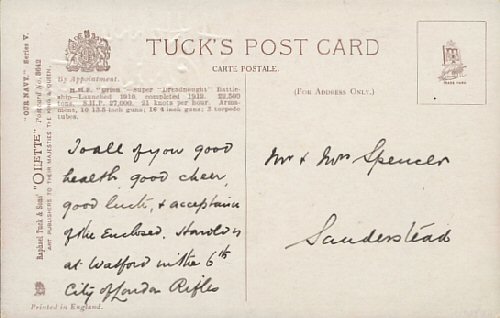 TUCK'S POST CARD
CARTE POSTALE.
By Appointment.
(FOR ADDRESS ONLY.)
TRADE MARK
H.M.S. "Orion"—Super "Dreadnought" Battle-
ship—Launched 1910, completed 1912. 22,500
tons. S.H.P. 27,000. 21 knots per hour. Arma-
ment, 10 13.5-inch guns; 16 4-inch guns; 3 torpedo
tubes.
"OUR NAVY." Series V.
"OILETTE" Postcard No. 8642
Raphael Tuck & Sons'
ART PUBLISHERS TO THEIR MAJESTIES THE KING & QUEEN.
To all of you good
health, good cheer,
good luck, & acceptance
of the Enclosed. Harold is
at Watford in the 6th
City of London Rifles
Mr & Mrs Spencer
Sanderstead
Printed in England.